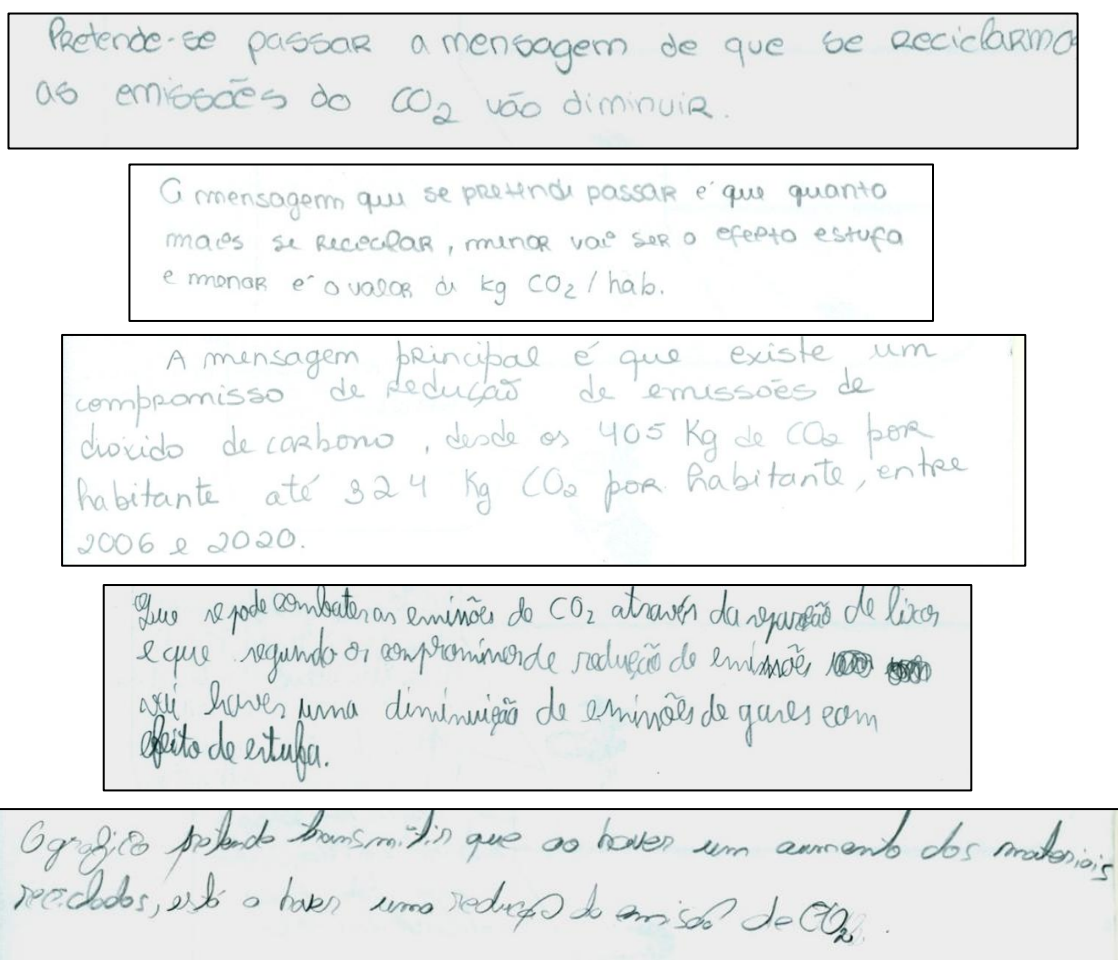 Pretende-se passar a mensagem de que se reciclarmo
as emissões do CO₂ vão diminuir.
A mensagem que se pretende passar é que quanto
mais se reciclar, menor vai ser o efeito estufa
e menor é o valor de kg CO₂ / hab.
A mensagem principal é que existe um
compromisso de redução de emissões de
dioxido de carbono, desde os 405 Kg de CO₂ por
habitante até 324 Kg CO₂ por habitante, entre
2006 e 2020.
Que se pode combater as emissões do CO₂ através da separação de lixos
e que segundo os compromissos de redução de emissões
vai haver uma diminuição de emissões de gases com
efeito de estufa.
O gráfico pretende transmitir que ao haver um aumento dos materiais
reciclados, está a haver uma redução da emissão de CO₂.